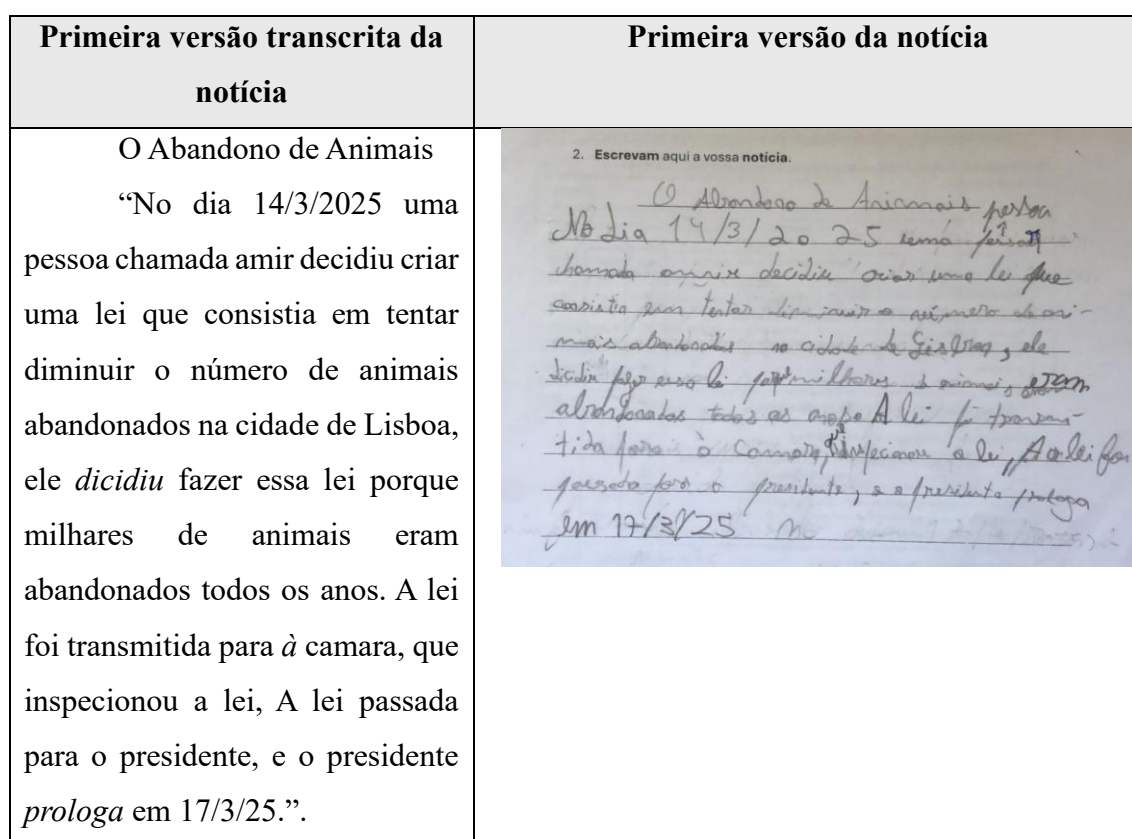 Primeira versão transcrita da
notícia
Primeira versão da notícia
O Abandono de Animais
“No dia 14/3/2025 uma
pessoa chamada amir decidiu criar
uma lei que consistia em tentar
diminuir o número de animais
abandonados na cidade de Lisboa,
ele dicidiu fazer essa lei porque
milhares de animais eram
abandonados todos os anos. A lei
foi transmitida para à camara, que
inspecionou a lei, A lei passada
para o presidente, e o presidente
prologa em 17/3/25.”.
2. Escrevam aqui a vossa notícia.
O Abandono de Animais
pessoa
No dia 14/3/2025 uma
chamada amir decidiu criar uma lei que
consistia em tentar diminuir o número de ani-
mais abandonados na cidade de Lisboa, ele
dicidiu fazer essa lei milhares de animais eram
abandonados todos os anos A lei foi transmi-
tida para à camara, que inspecionou a lei, A lei foi
passada para o presidente, e o presidente prologa
em 17/3/25